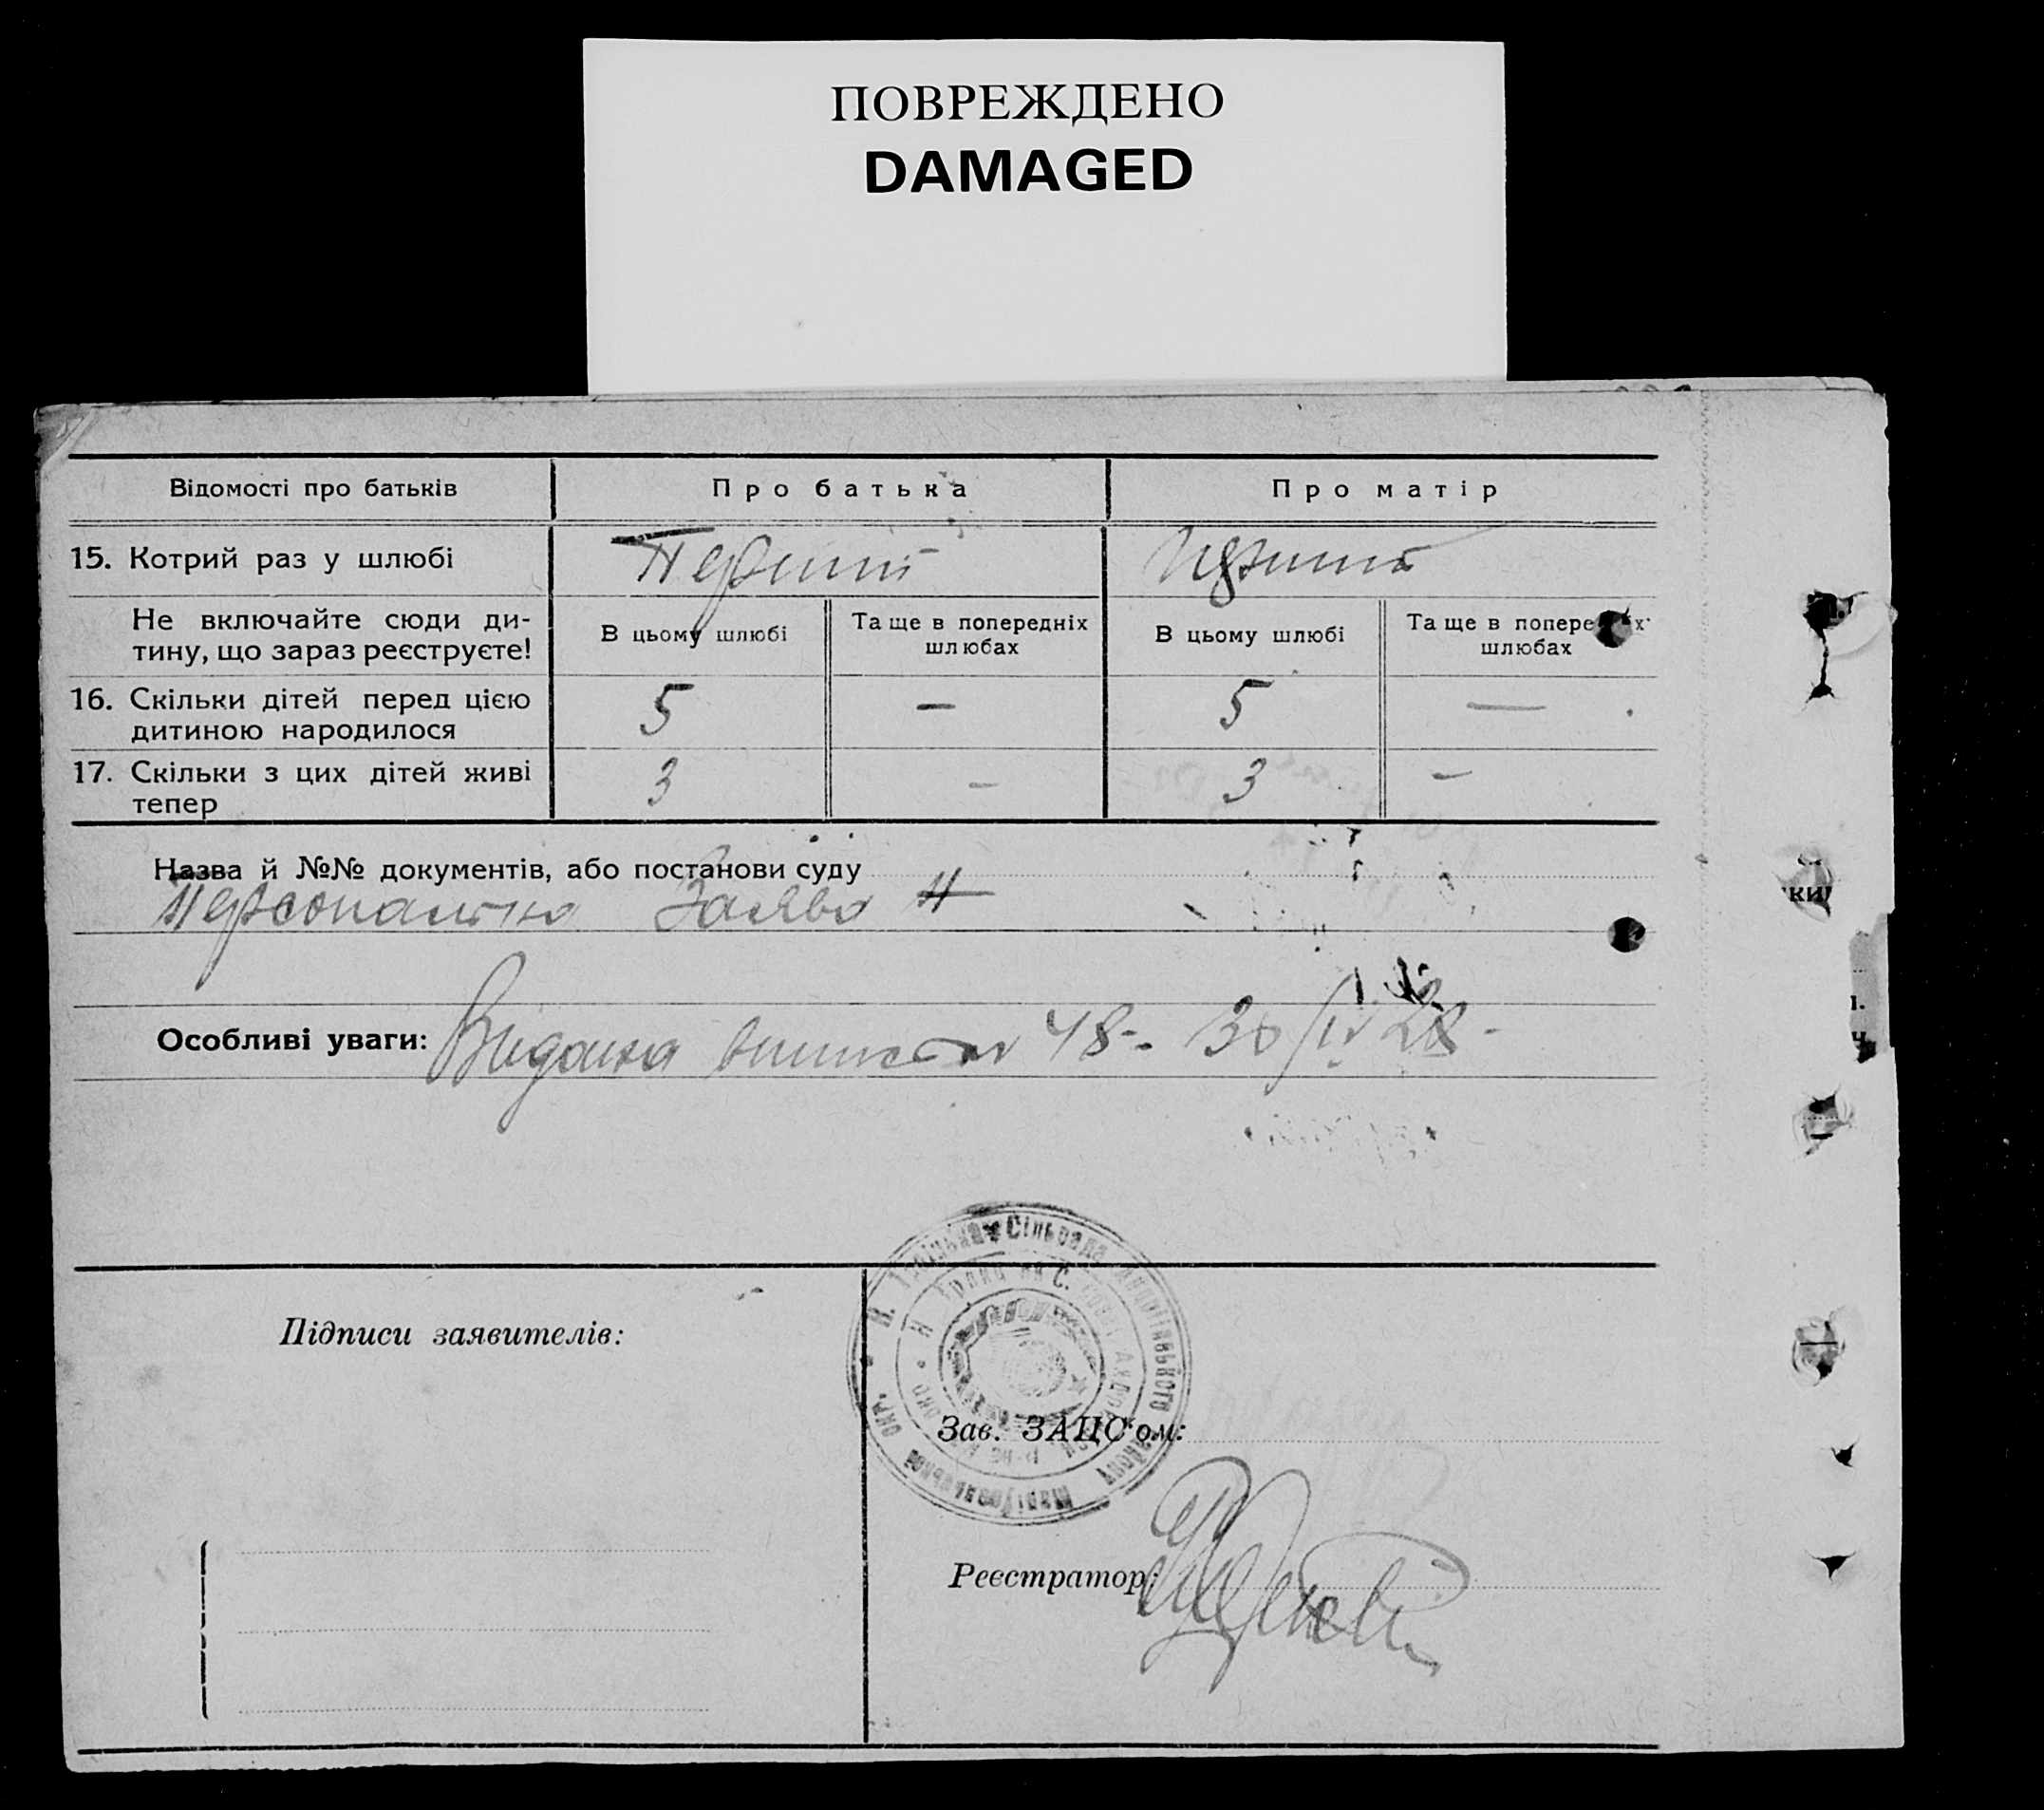 ПОВРЕЖДЕНО
DAMAGED
Відомості про батьків
Про батька
Про матір
15. Котрий раз у шлюбі
Перший
Перший
Не включайте сюди ди-
тину, що зараз реєструєте!
В цьому шлюбі
Та ще в попередніх
шлюбах
В цьому шлюбі
Та ще в попере х
шлюбах
16. Скільки дітей перед цією
дитиною народилося
5
—
5
—
17. Скільки з цих дітей живі
тепер
3
—
3
—
Назва й №№ документів, або постанови суду
Персональна Заява
Особливі уваги: Видана 48-. 30/IV 28-
Сільрада
Маріупольської окр.
Підписи заявителів:
Зав. ЗАЦС'ом:
Реєстратор: